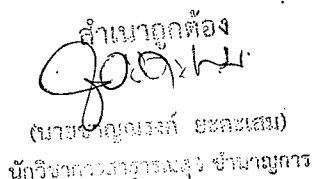 สำเนาถูกต้อง
(นายชาญณรงค์ ยะคะเสม)
นักวิชาการสาธารณสุข ชำนาญการ